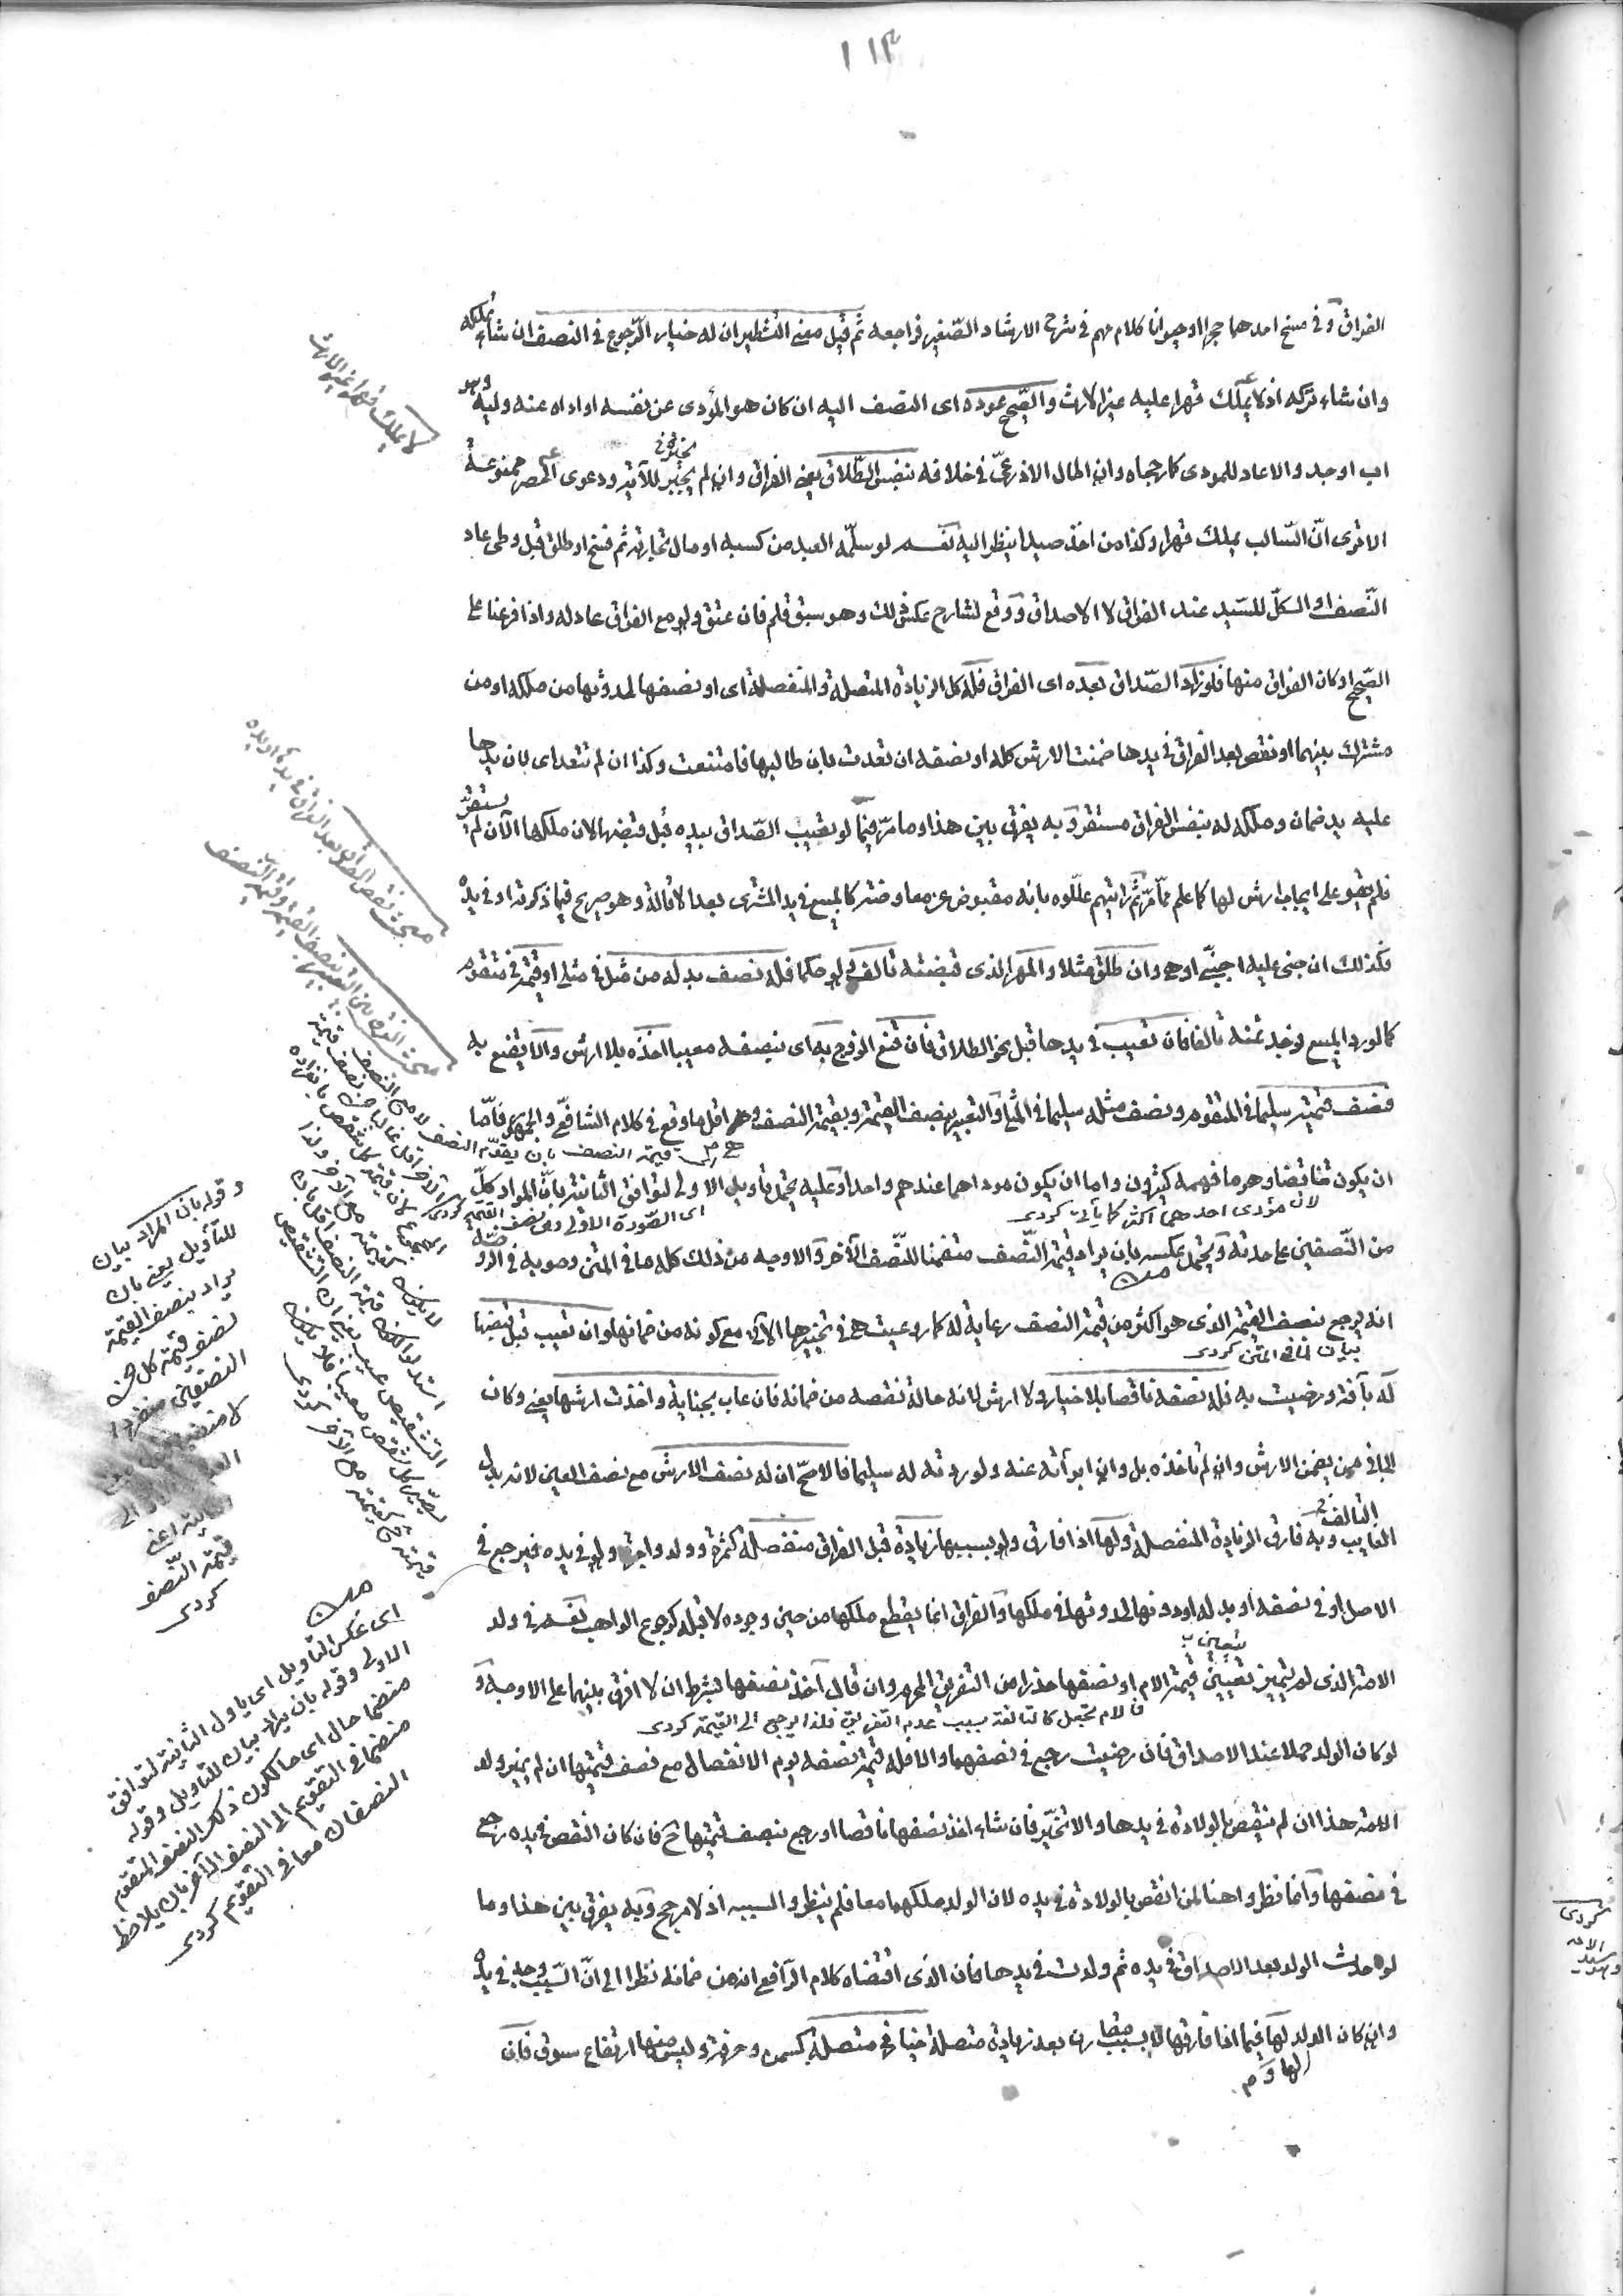 ١١٣
الفراق وفى مسخ احدهما حجرا او حيوانا كلام مهم فى شرح الارشاد الصّغير فراجعه ثم قيل معنى التشطير ان له خيار الرّجوع فى النصف ان شاء تملكه
وان شاء تركه اذ لا يملك قهرا عليه غير الارث والصّحيح عوده اى النصف اليه ان كان هو المؤدى عن نفسه او اداه عنه وليه وهو
اب او جد والا عاد للمودى كما رجحاه وان اطال الاذرعىّ فى خلافه بنفس الطّلاق يعنى الفراق وان لم يختر للآية ودعوى الحصر ممنوعة
الا ترى انّ السّالب يملك قهرا وكذا من اخذ صيدا ينظر اليه نعم لو سلّمه العبد من كسبه او مال تجارته ثم فسخ او طلق قبل وطئ عاد
النّصف او الكلّ للسّيد عند الفراق لا الاصداق ووقع لشارح عكس ذلك وهو سبق قلم فان عتق ولو مع الفراق عاد له واذا فرعنا على
الصّحيح او كان الفراق منها فلو زاد الصّداق بعده اى الفراق فله كل الزيادة المتصلة والمنفصلة اى او نصفها لحدوثها من ملكه او من
مشترك بينهما او نقص بعد الفراق فى يدها ضمنت الارش كله او نصفه ان تعدت بان طالبها فامتنعت وكذا ان لم تتعد اى لان يدها
عليه يد ضمان وملكه له بنفس الفراق مستقر وبه يفرق بين هذا وما مرّ فيما لو تعيب الصّداق بيده قبل قبضها لان ملكها الآن لم يستقر
فلم يقو على ايجاب ارش لها كما علم ممّا مرّ ثم رايتهم علّلوه بانه مقبوض عن معاوضة كالمبيع فى يد المشترى بعد الاقالة وهو صريح فيما ذكرته او فى يده
فكذلك ان جنى عليه اجنبىّ او هى وان طلق مثلا والمهر الذى قبضته تالف ولو حكما فله نصف بدله من مثل فى مثلى او قيمة فى متقوم
كما لو رد المبيع فوجد ثمنه تالفا فان تعيب فى يدها قبل نحو الطلاق فان قنع الزوج به اى بنصفه معيبا اخذه بلا ارش والّا يقنع به
فنصف قيمته سليما فى المتقوم ونصف مثله سليما فى المثلى والتعبير بنصف القيمة وبقيمة النصف وهى اقل ما وقع فى كلام الشافعىّ والجمهور فامّا
ان يكون تناقضا وهو ما فهمه كثيرون واما ان يكون موداهما عندهم واحدا وعليه يحتمل تأويل الاولى لتوافق الثانية بانّ المراد بكلّ
من النّصفين على حدته ويحتمل عكسه بان يراد قيمة النّصف منضما للنّصف الآخر والاوجه من ذلك كله ما فى المتن وصوبه فى الروضة
انه يرجع بنصف القيمة الذى هو اكثر من قيمة النصف رعاية له كما روعيت هى فى تخييرها الآتى مع كونه من ضمانها وان تعيب قبل قبضها
له بآفة ورضيت به فله نصفه ناقصا بلا خيار ولا ارش لانه حالة نقصه من ضمانه فان عاب بجناية واخذت ارشها يعنى وكان
الجانى ممن يضمن الارش وان لم تاخذه بل وان ابرأته عنه ولو ردته له سليما فالاصحّ ان له نصف الارش مع نصف العين لانه بدل
الفايت وبه فارق الزيادة المنفصلة ولها اذا فارق ولو بسببها زيادة قبل الفراق منفصلة كثمرة وولد واجرة ولو فى يده فيرجع فى
الاصل او فى نصفه او بدله او دونها لحدوثها فى ملكها والفراق انما يقطع ملكها من حين وجوده لا قبله كرجوع الواهب نعم فى ولد
الامة الذى لم يتميز تتعين قيمة الام او نصفها حذرا من التفريق المحرم وان قال آخذ نصفها بشرط ان لا افرق بينهما على الاوجه و
لو كان الولد حملا عند الاصداق فان رضيت رجع فى نصفهما والا فله قيمة نصفه يوم الانفصال مع نصف قيمتها ان لم يميز ولد
الامة هذا ان لم تنقص بالولادة فى يدها والا تخيّر فان شاء اخذ نصفها ناقصا او رجع بنصف قيمتها ح فان كان النقص فى يده رجع
فى نصفها وانما نظروا هنا لمن النقص بالولادة فى يده لان الولد ملكهما معا فلم ينظروا لسببه اذ لا مرجح وبه يفرق بين هذا وما
لو حدث الولد بعد الاصداق فى يده ثم ولدت فى يدها فان الذى اقتضاه كلام الرّافعى انه من ضمانه نظرا الى انّ السّبب وجد فى يده
وان كان الولد لها فيما اذا فارقها لا بسبب مقارن بعد زيادة متصلة خيار فى متصلة كسمن وحرفة وليس منها ارتفاع سوق فان
لا يملك قهرا غير الارث
مبحث نقص الصداق بعد الفراق فى يدها او يده
التالفة
قيمة النصف بان يقدّم النصف
لان مؤدى احدهما اكثر كما يأتى كردى
اى الصّورة الاولى وهى نصف القيمة كردى
بيان لما فى المتن كردى
فالام تجعل كالتالفة بسبب عدم التفريق فلذا يرجع الى القيمة كردى
وقوله بان المراد بيان
للتأويل يعنى بان
يراد بنصف القيمة
نصف قيمة كل من
النصفين منفردا
قيمة النّصف
كردى
اى عكس التاويل اى ياول الثانية لتوافق
الاولى وقوله بان يراد بيان للتاويل وقوله
منضما حال اى حال كون ذلك النصف المتقوم
منضما فى التقويم الى النصف الآخر بان يلاحظ
النصفان معا فى التقويم كردى